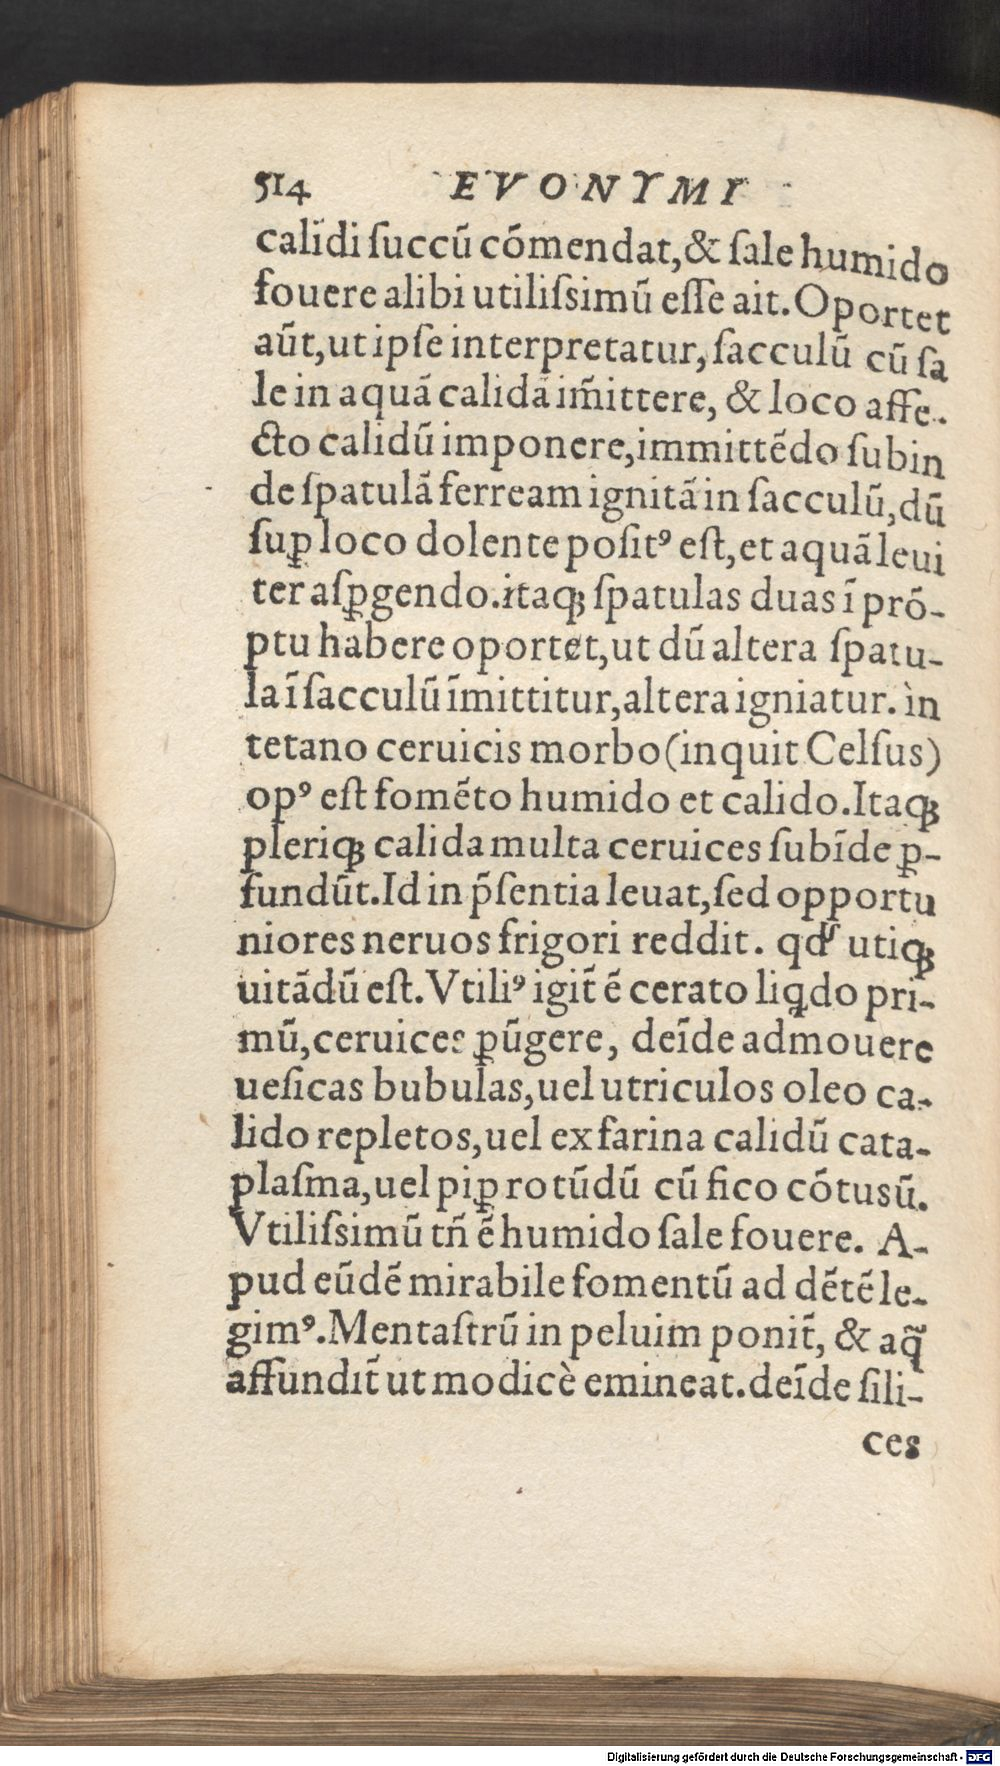 514 EVONYMI
calidi ſuccū cōmendat,& ſale humido
fouere alibi utiliſsimū eſſe ait. Oportet
aūt, ut ipſe interpretatur, ſacculū cū ſa
le in aquā calidā im̄ittere, & loco affe-
cto calidū imponere, immittēdo ſubin
de ſpatulā ferream ignitā in ſacculū, dū
ſuꝑ loco dolente poſitꝰ eſt, et aquā leui
ter aſꝑgendo. itaqꝫ ſpatulas duas ī prō-
ptu habere oportet, ut dū altera ſpatu-
la ī ſacculū īmittitur, altera igniatur. in
tetano ceruicis morbo (inquit Celſus)
opꝰ eſt fomēto humido et calido. Itaqꝫ
pleriqꝫ calida multa ceruices ſubīde ꝑ-
fundūt. Id in p̄ſentia leuat, ſed opportu
niores neruos frigori reddit. qđ utiqꝫ
uitādū eſt. Vtiliꝰ igit̄ ē cerato liqdo pri-
mū, ceruices ꝑūgere, deīde admouere
ueſicas bubulas, uel utriculos oleo ca-
lido repletos, uel ex farina calidū cata-
plaſma, uel piꝑ rotūdū cū fico cōtusū.
Vtiliſsimū tñ ē humido ſale fouere. A-
pud eūdē mirabile fomentū ad dētē le-
gimꝰ. Mentaſtrū in peluim ponit̄, & aq̄
affundit̄ ut modicè emineat. deīde ſili-
ces
Digitalisierung gefördert durch die Deutsche Forschungsgemeinschaft - DFG